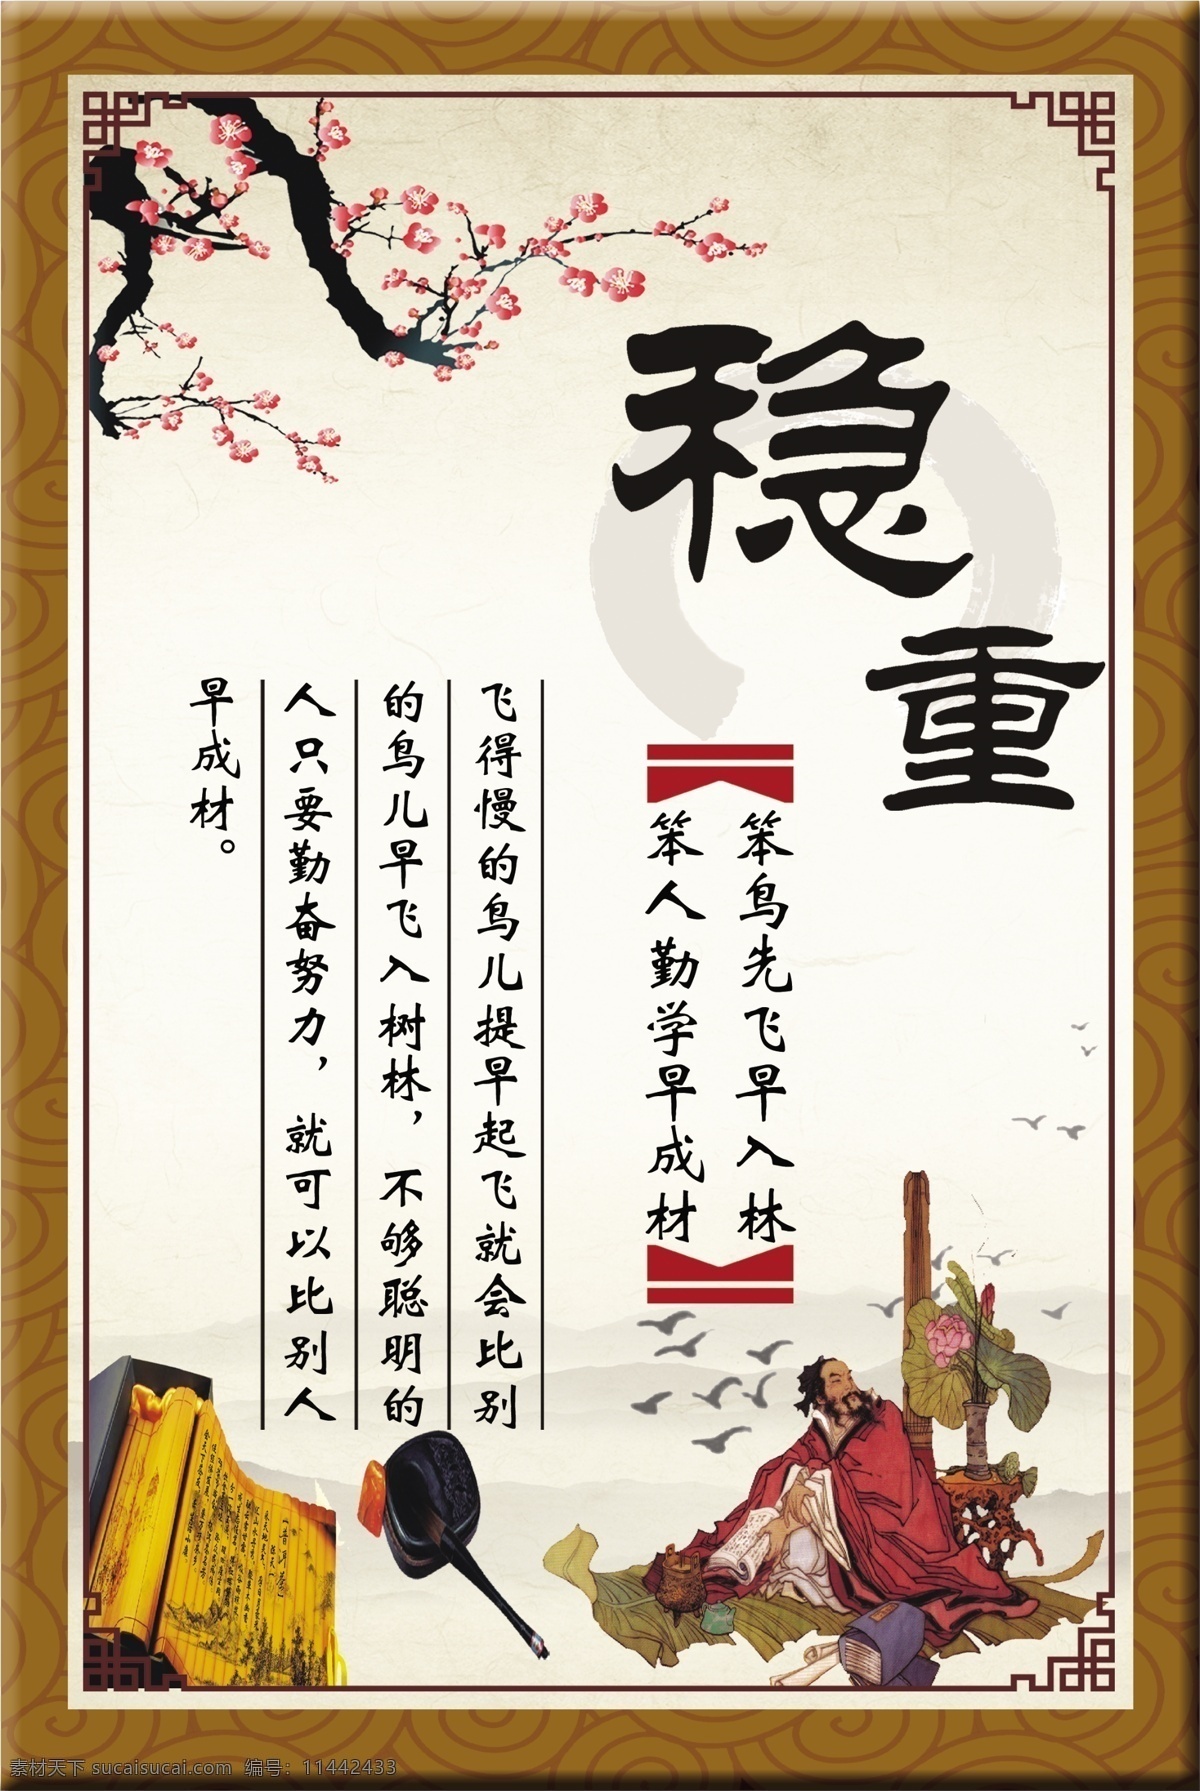 稳重
笨鸟先飞早入林
笨人勤学早成材
飞得慢的鸟儿提早起飞就会比别
的鸟儿早飞入树林，不够聪明的
人只要勤奋努力，就可以比别人
早成材。
素材天下 sucaisucai.com 编号：11442433